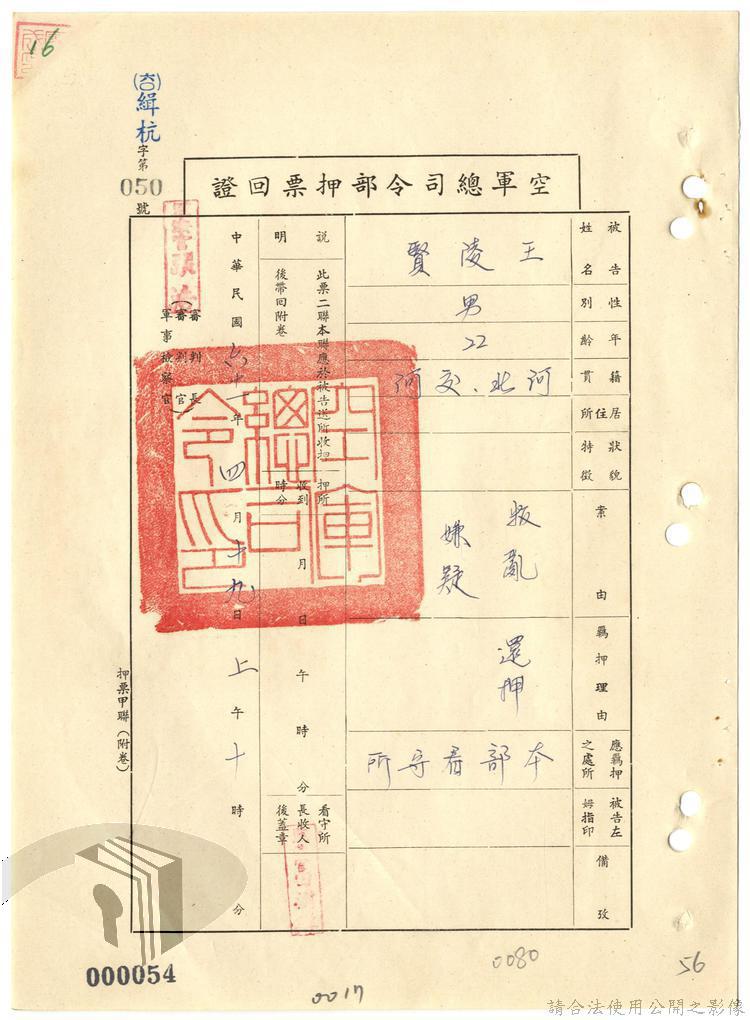 16
(六〇)緝杭字第050號
空軍總司令部押票回證
被告姓名 王陵賢
性別 男
年齡 22
籍貫 河北、交河
居住所
狀貌特徵
案由 叛亂嫌疑
羈押理由 還押
應羈押之處所 本部看守所
被告左姆指印
備攷
說明 此票二聯本聯應於被告送所收押後帶回附卷
押所收到時分 月 日 午 時 分
看守所長收人後蓋章
中華民國六十一年四月十九日上午十時 分
審判長
審判官
軍事檢察官
空軍總司令印
押票甲聯(附卷)
000054
0017
0080
56
請合法使用公開之影像